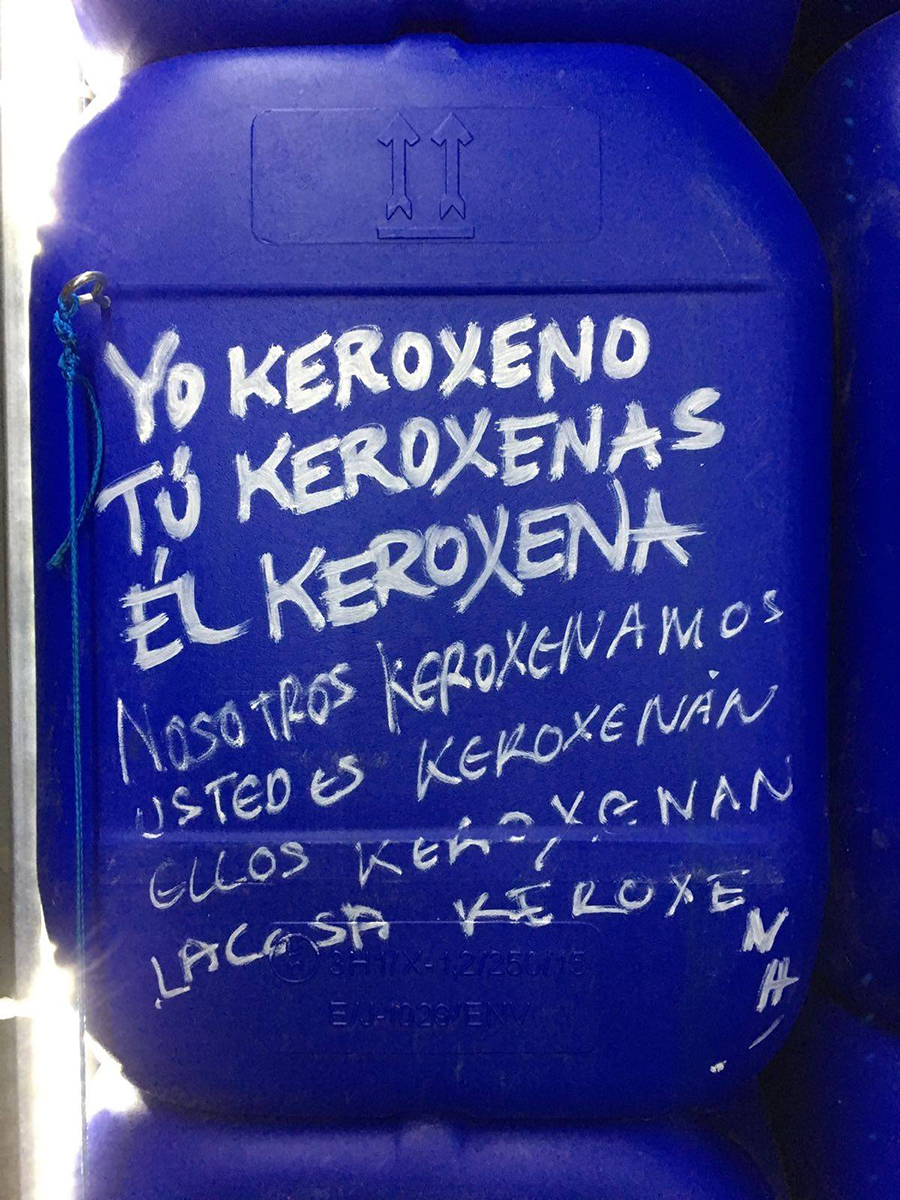 YO KEROXENO
TÚ KEROXENAS
ÉL KEROXENA
NOSOTROS KEROXENAMOS
USTEDES KEROXENÁN
ELLOS KEROXENAN
LA COSA KEROXENA
3H1/X-1,2/250/15